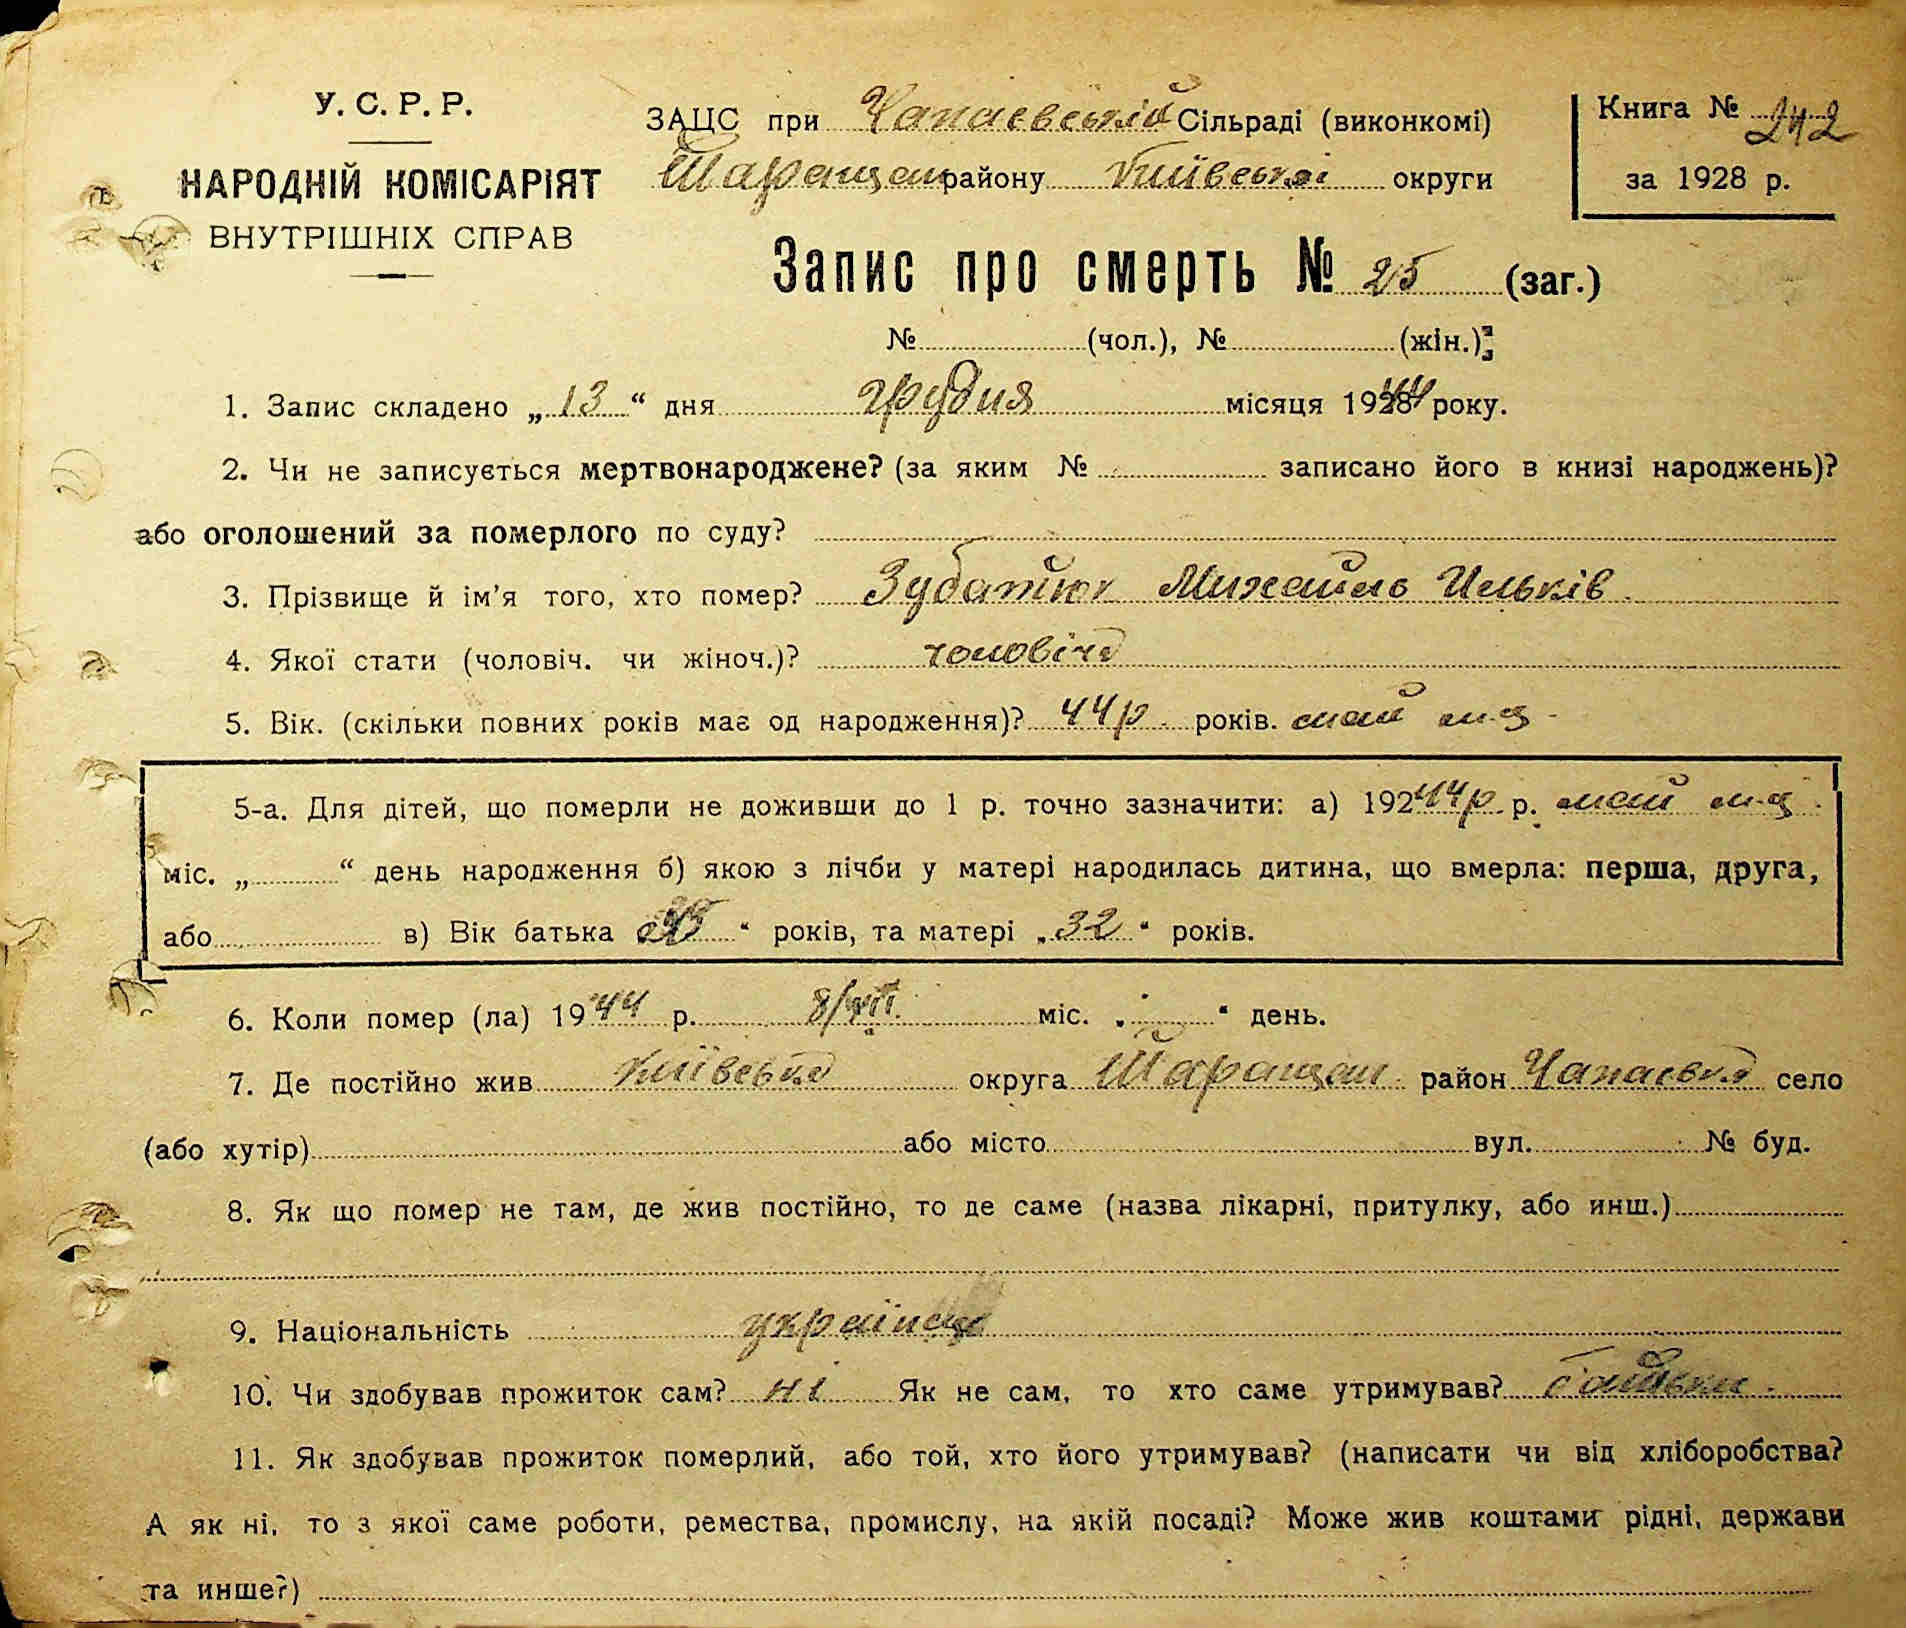 У. С. Р. Р.
НАРОДНІЙ КОМІСАРІЯТ
ВНУТРІШНІХ СПРАВ
ЗАЦС при Чапаєвській Сільраді (виконкомі)
Таращан району Київської округи
Книга № 242
за 1928 р.
Запис про смерть № 25 (заг.)
№ (чол.), № (жін.)
1. Запис складено „ 13 “ дня грудня місяця 1944 року.
2. Чи не записується мертвонароджене? (за яким № записано його в книзі народжень)?
або оголошений за померлого по суду?
3. Прізвище й ім'я того, хто помер? Зубатюк Михайло Ильків
4. Якої стати (чоловіч. чи жіноч.)? чоловіча
5. Вік. (скільки повних років має од народження)? 44р. років. май м-ц
5-а. Для дітей, що померли не доживши до 1 р. точно зазначити: а) 192 44р. р. май м-ц
міс. „ “ день народження б) якою з лічби у матері народилась дитина, що вмерла: перша, друга,
або в) Вік батька “ років, та матері „ 32 “ років.
6. Коли помер (ла) 19 44 р. міс. „ “ день.
7. Де постійно жив Київська округа Таращан район Чапаєвка село
(або хутір) або місто вул. № буд.
8. Як що помер не там, де жив постійно, то де саме (назва лікарні, притулку, або инш.)
9. Національність українець
10. Чи здобував прожиток сам? ні Як не сам, то хто саме утримував? батьки.
11. Як здобував прожиток померлий, або той, хто його утримував? (написати чи від хліборобства?
А як ні, то з якої саме роботи, ремества, промислу, на якій посаді? Може жив коштами рідні, держави
та инше?)